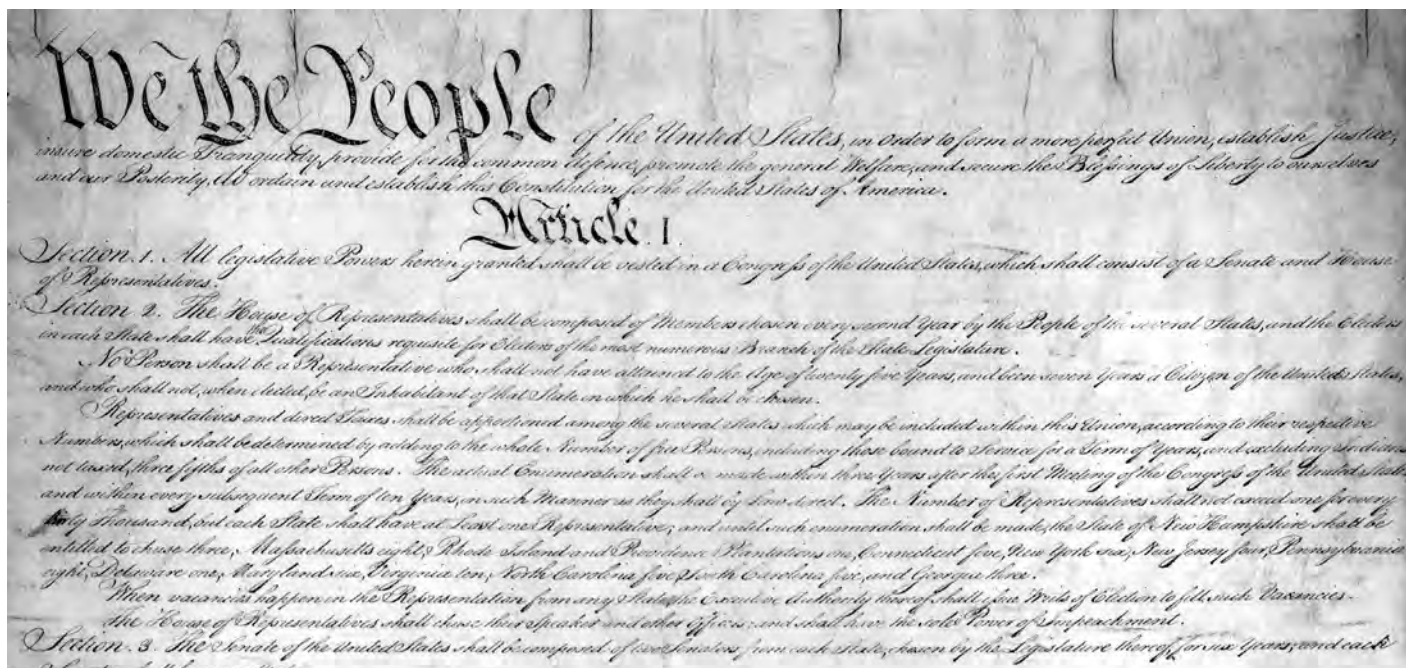 We the People of the United States, in Order to form a more perfect Union, establish Justice,
insure domestic Tranquility, provide for the common defence, promote the general Welfare, and secure the Blessings of Liberty to ourselves
and our Posterity, do ordain and establish this Constitution for the United States of America.
Article. I.
Section. 1. All legislative Powers herein granted shall be vested in a Congress of the United States, which shall consist of a Senate and House
of Representatives.
Section. 2. The House of Representatives shall be composed of Members chosen every second Year by the People of the several States, and the Electors
in each State shall have the Qualifications requisite for Electors of the most numerous Branch of the State Legislature.
No Person shall be a Representative who shall not have attained to the Age of twenty five Years, and been seven Years a Citizen of the United States,
and who shall not, when elected, be an Inhabitant of that State in which he shall be chosen.
Representatives and direct Taxes shall be apportioned among the several States which may be included within this Union, according to their respective
Numbers, which shall be determined by adding to the whole Number of free Persons, including those bound to Service for a Term of Years, and excluding Indians
not taxed, three fifths of all other Persons. The actual Enumeration shall be made within three Years after the first Meeting of the Congress of the United States,
and within every subsequent Term of ten Years, in such Manner as they shall by Law direct. The Number of Representatives shall not exceed one for every
thirty Thousand, but each State shall have at Least one Representative; and until such enumeration shall be made, the State of New Hampshire shall be
entitled to chuse three, Massachusetts eight, Rhode Island and Providence Plantations one, Connecticut five, New York six, New Jersey four, Pennsylvania
eight, Delaware one, Maryland six, Virginia ten, North Carolina five, South Carolina five, and Georgia three.
When vacancies happen in the Representation from any State, the Executive Authority thereof shall issue Writs of Election to fill such Vacancies.
The House of Representatives shall chuse their Speaker and other Officers; and shall have the sole Power of Impeachment.
Section. 3. The Senate of the United States shall be composed of two Senators from each State, chosen by the Legislature thereof, for six Years; and each